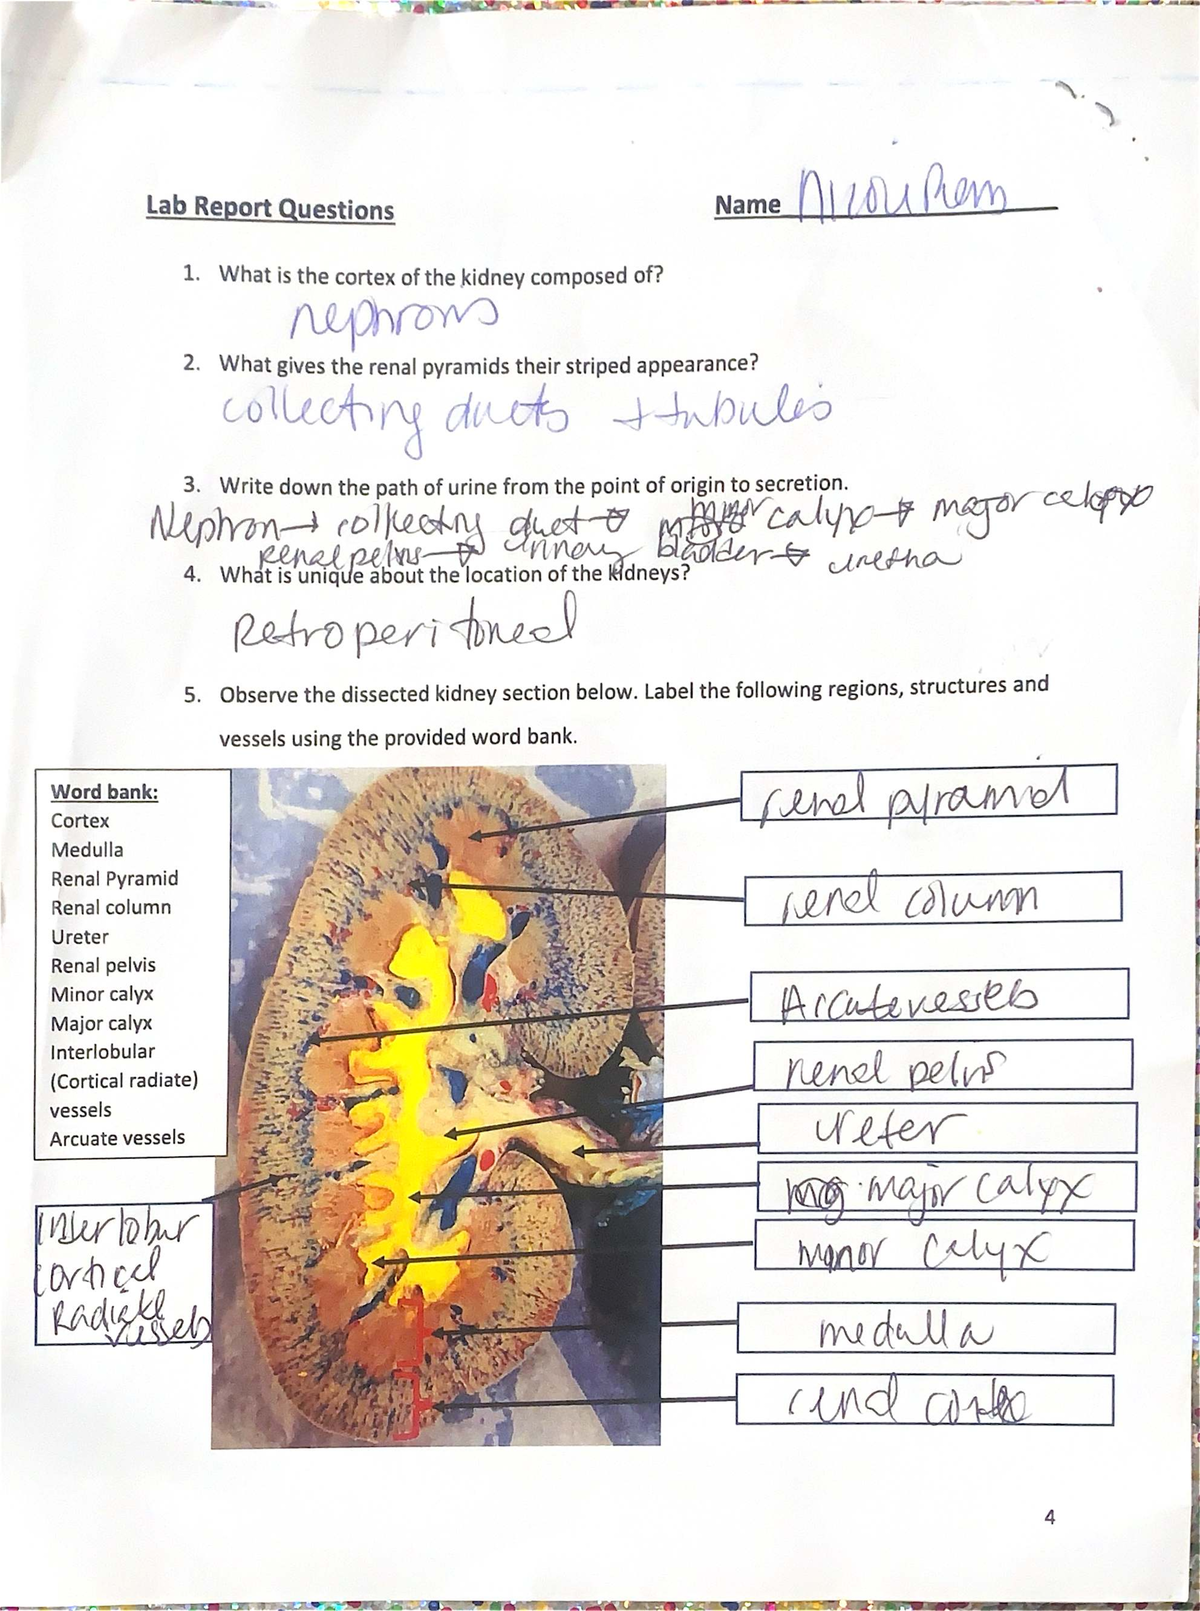 Lab Report Questions
Name
1. What is the cortex of the kidney composed of?
nephrons
2. What gives the renal pyramids their striped appearance?
collecting ducts + tubules
3. Write down the path of urine from the point of origin to secretion.
Nephron → collecting duct → minor calyx → major calyx
renal pelvis → urinary bladder → uretha
4. What is unique about the location of the kidneys?
Retroperitoneal
5. Observe the dissected kidney section below. Label the following regions, structures and
vessels using the provided word bank.
Word bank:
Cortex
Medulla
Renal Pyramid
Renal column
Ureter
Renal pelvis
Minor calyx
Major calyx
Interlobular
(Cortical radiate)
vessels
Arcuate vessels
Interlobur
cortical
Radiate
vessels
renal pyramid
renal column
Arcuate vessels
renal pelvis
ureter
major calyx
minor calyx
medulla
renal cortex
4